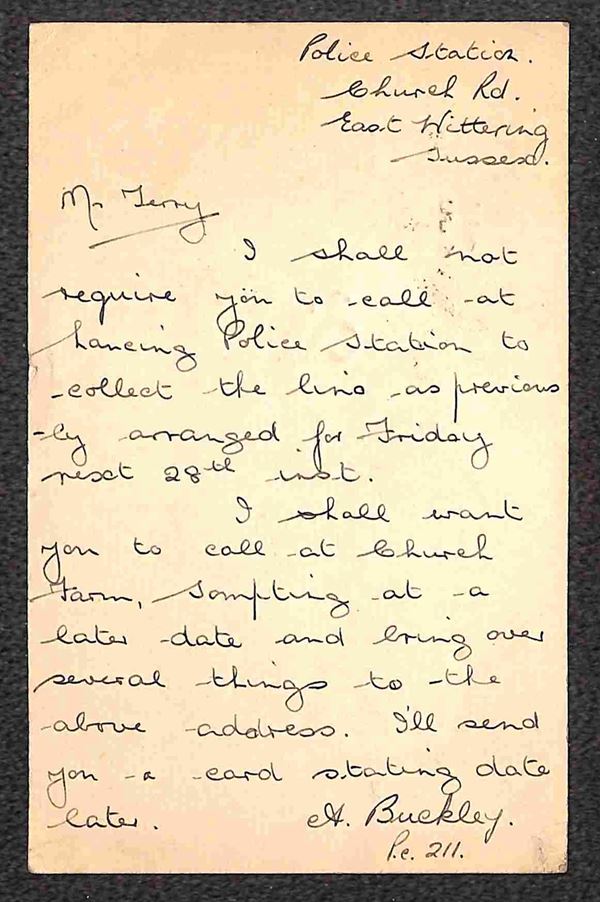 Police Station.
Church Rd.
East Wittering
Sussex.
Mr Terry
I shall not
require you to call at
Lancing Police Station to
collect the lino as previous
-ly arranged for Friday
next 28th inst.
I shall want
you to call at Church
Farm, Sompting at a
later date and bring over
several things to the
above address. I'll send
you a card stating date
later. A. Buckley.
P.c. 211.